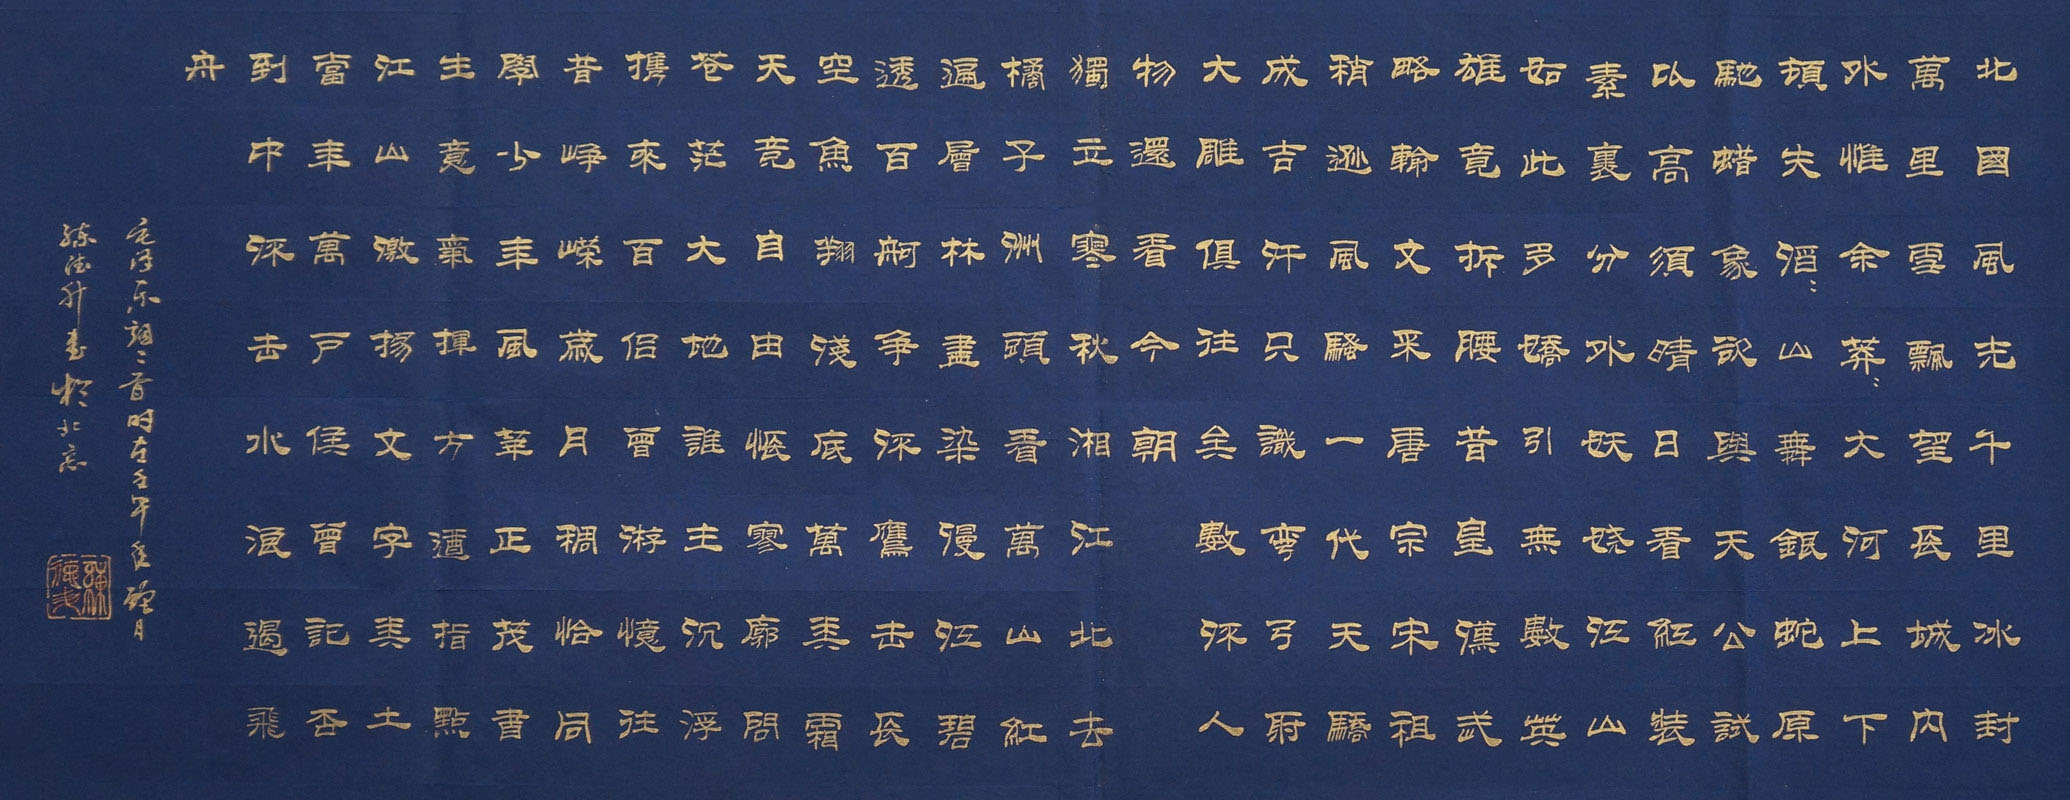 北國風光千里冰封
萬里雪飄望長城內
外惟余莽：大河上下
頓失滔：山舞銀蛇原
馳蜡象欲與天公試
比高須晴日看紅裝
素裏分外妖嬈江山
如此多嬌引無數英
雄竟折腰昔皇漢武
略輸文采唐宗宋祖
稍遜風騷一代天驕
成吉汗只識彎弓射
大雕俱往矣數流人
物還看今朝
獨立寒秋湘江北去
橘子洲頭看萬山紅
遍層林盡染漫江碧
透百舸爭流鷹击長
空魚翔淺底萬类霜
天竞自由悵寥廓問
蒼茫大地誰主沉浮
携來百侣曾游憶往
昔崢嶸歲月稠恰同
學少年風華正茂書
生意氣揮方遒指點
江山激揚文字类土
當年萬户侯曾記否
到中流击水浪遏飛
舟
毛泽东詞二首时在壬午年月
德升書於北京